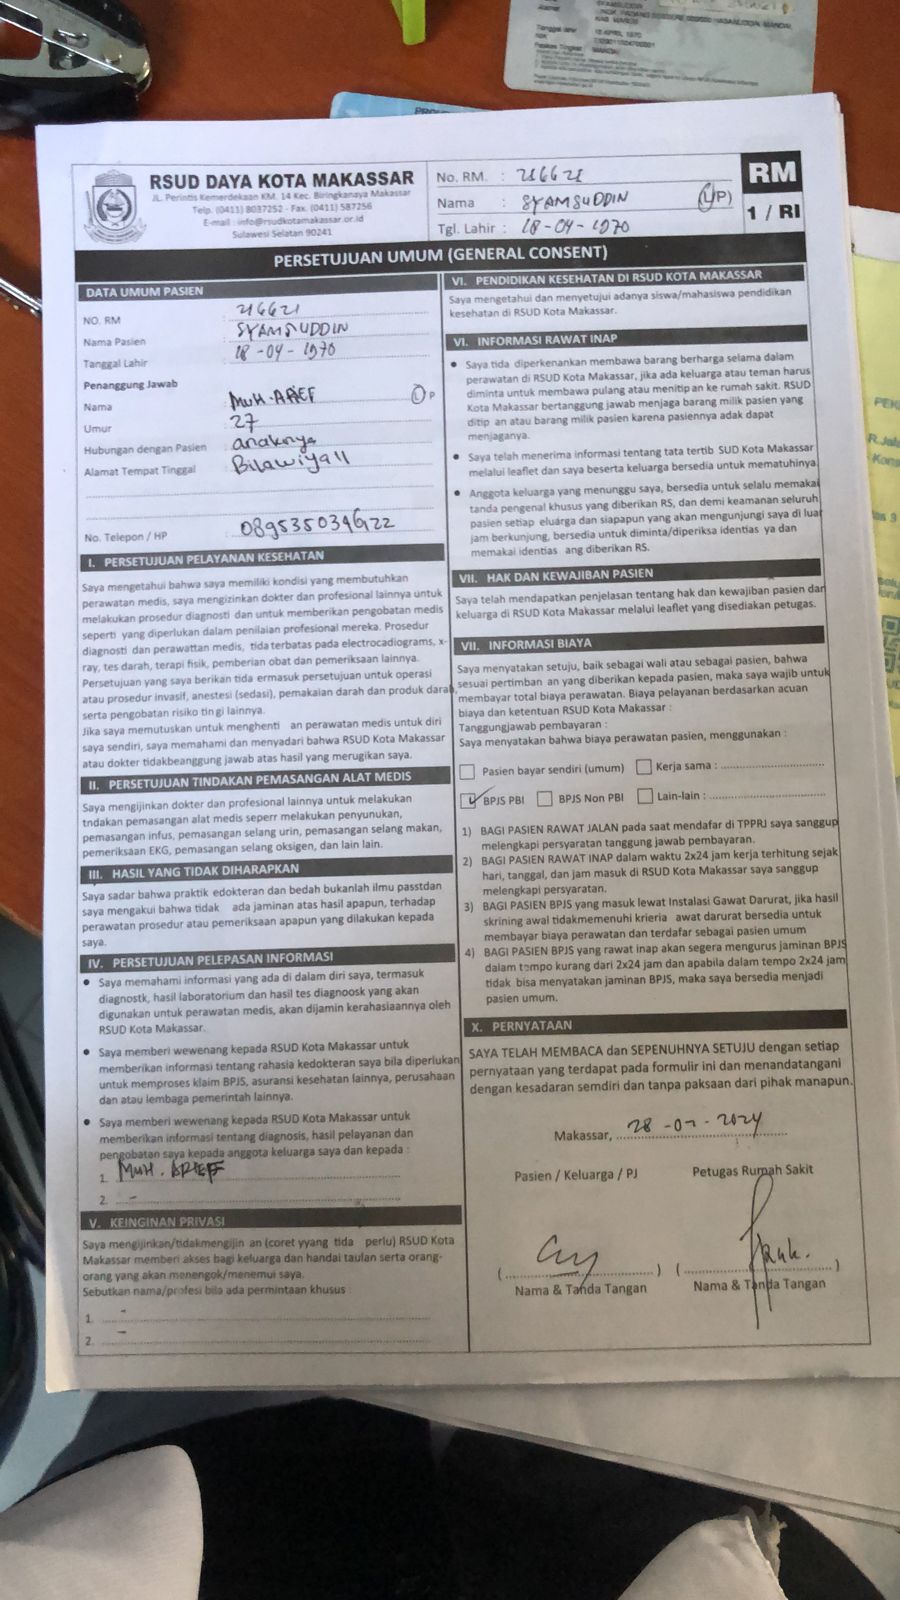 SYAMSUDDIN
Tanggal lahir
RSUD DAYA KOTA MAKASSAR
JL. Perintis Kemerdekaan KM. 14 Kec. Biringkanaya Makassar
Telp. (0411) 8037252 - Fax. (0411) 587256
E-mail : info@rsudkotamakassar.or.id
Sulawesi Selatan 90241
No. RM. : 216621
Nama : SYAMSUDDIN (L/P)
Tgl. Lahir : 18-04-1970
RM
1 / RI
PERSETUJUAN UMUM (GENERAL CONSENT)
DATA UMUM PASIEN
NO. RM : 216621
Nama Pasien : SYAMSUDDIN
Tanggal Lahir : 18-04-1970
Penanggung Jawab
Nama : MUH. ARIEF L P
Umur : 27
Hubungan dengan Pasien : anaknya
Alamat Tempat Tinggal : Bilawiya 11
No. Telepon / HP :
I. PERSETUJUAN PELAYANAN KESEHATAN
Saya mengetahui bahwa saya memiliki kondisi yang membutuhkan
perawatan medis, saya mengizinkan dokter dan profesional lainnya untuk
melakukan prosedur diagnosti dan untuk memberikan pengobatan medis
seperti yang diperlukan dalam penilaian profesional mereka. Prosedur
diagnosti dan perawattan medis, tida terbatas pada electrocadiograms, x-
ray, tes darah, terapi fisik, pemberian obat dan pemeriksaan lainnya.
Persetujuan yang saya berikan tida ermasuk persetujuan untuk operasi
atau prosedur invasif, anestesi (sedasi), pemakaian darah dan produk darah,
serta pengobatan risiko tin gi lainnya.
Jika saya memutuskan untuk menghenti an perawatan medis untuk diri
saya sendiri, saya memahami dan menyadari bahwa RSUD Kota Makassar
atau dokter tidakbeanggung jawab atas hasil yang merugikan saya.
II. PERSETUJUAN TINDAKAN PEMASANGAN ALAT MEDIS
Saya mengijinkan dokter dan profesional lainnya untuk melakukan
tndakan pemasangan alat medis seperr melakukan penyunukan,
pemasangan infus, pemasangan selang urin, pemasangan selang makan,
pemeriksaan EKG, pemasangan selang oksigen, dan lain lain.
III. HASIL YANG TIDAK DIHARAPKAN
Saya sadar bahwa praktik edokteran dan bedah bukanlah ilmu passtdan
saya mengakui bahwa tidak ada jaminan atas hasil apapun, terhadap
perawatan prosedur atau pemeriksaan apapun yang dilakukan kepada
saya.
IV. PERSETUJUAN PELEPASAN INFORMASI
• Saya memahami informasi yang ada di dalam diri saya, termasuk
diagnostk, hasil laboratorium dan hasil tes diagnoosk yang akan
digunakan untuk perawatan medis, akan dijamin kerahasiaannya oleh
RSUD Kota Makassar.
• Saya memberi wewenang kepada RSUD Kota Makassar untuk
memberikan informasi tentang rahasia kedokteran saya bila diperlukan
untuk memproses klaim BPJS, asuransi kesehatan lainnya, perusahaan
dan atau lembaga pemerintah lainnya.
• Saya memberi wewenang kepada RSUD Kota Makassar untuk
memberikan informasi tentang diagnosis, hasil pelayanan dan
pengobatan saya kepada anggota keluarga saya dan kepada :
1. MUH. ARIEF
2. -
V. KEINGINAN PRIVASI
Saya mengijinkan/tidakmengijin an (coret yyang tida perlu) RSUD Kota
Makassar memberi akses bagi keluarga dan handai taulan serta orang-
orang yang akan menengok/menemui saya.
Sebutkan nama/profesi bila ada permintaan khusus :
1. -
2. -
VI. PENDIDIKAN KESEHATAN DI RSUD KOTA MAKASSAR
Saya mengetahui dan menyetujui adanya siswa/mahasiswa pendidikan
kesehatan di RSUD Kota Makassar.
VI. INFORMASI RAWAT INAP
• Saya tida diperkenankan membawa barang berharga selama dalam
perawatan di RSUD Kota Makassar, jika ada keluarga atau teman harus
diminta untuk membawa pulang atau menitip an ke rumah sakit. RSUD
Kota Makassar bertanggung jawab menjaga barang milik pasien yang
ditip an atau barang milik pasien karena pasiennya adak dapat
menjaganya.
• Saya telah menerima informasi tentang tata tertib SUD Kota Makassar
melalui leaflet dan saya beserta keluarga bersedia untuk mematuhinya.
• Anggota keluarga yang menunggu saya, bersedia untuk selalu memakai
tanda pengenal khusus yang diberikan RS, dan demi keamanan seluruh
pasien setiap eluárga dan siapapun yang akan mengunjungi saya di luar
jam berkunjung, bersedia untuk diminta/diperiksa identias ya dan
memakai identias ang diberikan RS.
VII. HAK DAN KEWAJIBAN PASIEN
Saya telah mendapatkan penjelasan tentang hak dan kewajiban pasien dan
keluarga di RSUD Kota Makassar melalui leaflet yang disediakan petugas.
VII. INFORMASI BIAYA
Saya menyatakan setuju, baik sebagai wali atau sebagai pasien, bahwa
sesuai pertimban an yang diberikan kepada pasien, maka saya wajib untuk
membayar total biaya perawatan. Biaya pelayanan berdasarkan acuan
biaya dan ketentuan RSUD Kota Makassar :
Tanggungjawab pembayaran :
Saya menyatakan bahwa biaya perawatan pasien, menggunakan :
Pasien bayar sendiri (umum) Kerja sama :
BPJS PBI BPJS Non PBI Lain-lain :
1) BAGI PASIEN RAWAT JALAN pada saat mendafar di TPPRJ saya sanggup
melengkapi persyaratan tanggung jawab pembayaran.
2) BAGI PASIEN RAWAT INAP dalam waktu 2x24 jam kerja terhitung sejak
hari, tanggal, dan jam masuk di RSUD Kota Makassar saya sanggup
melengkapi persyaratan.
3) BAGI PASIEN BPJS yang masuk lewat Instalasi Gawat Darurat, jika hasil
skrining awal tidakmemenuhi krieria awat darurat bersedia untuk
membayar biaya perawatan dan terdafar sebagai pasien umum
4) BAGI PASIEN BPJS yang rawat inap akan segera mengurus jaminan BPJS
dalam tempo kurang dari 2x24 jam dan apabila dalam tempo 2x24 jam
tidak bisa menyatakan jaminan BPJS, maka saya bersedia menjadi
pasien umum.
X. PERNYATAAN
SAYA TELAH MEMBACA dan SEPENUHNYA SETUJU dengan setiap
pernyataan yang terdapat pada formulir ini dan menandatangani
dengan kesadaran semdiri dan tanpa paksaan dari pihak manapun.
Makassar, 28-07-2024
Pasien / Keluarga / PJ Petugas Rumah Sakit
(....................) (....................)
Nama & Tanda Tangan Nama & Tanda Tangan